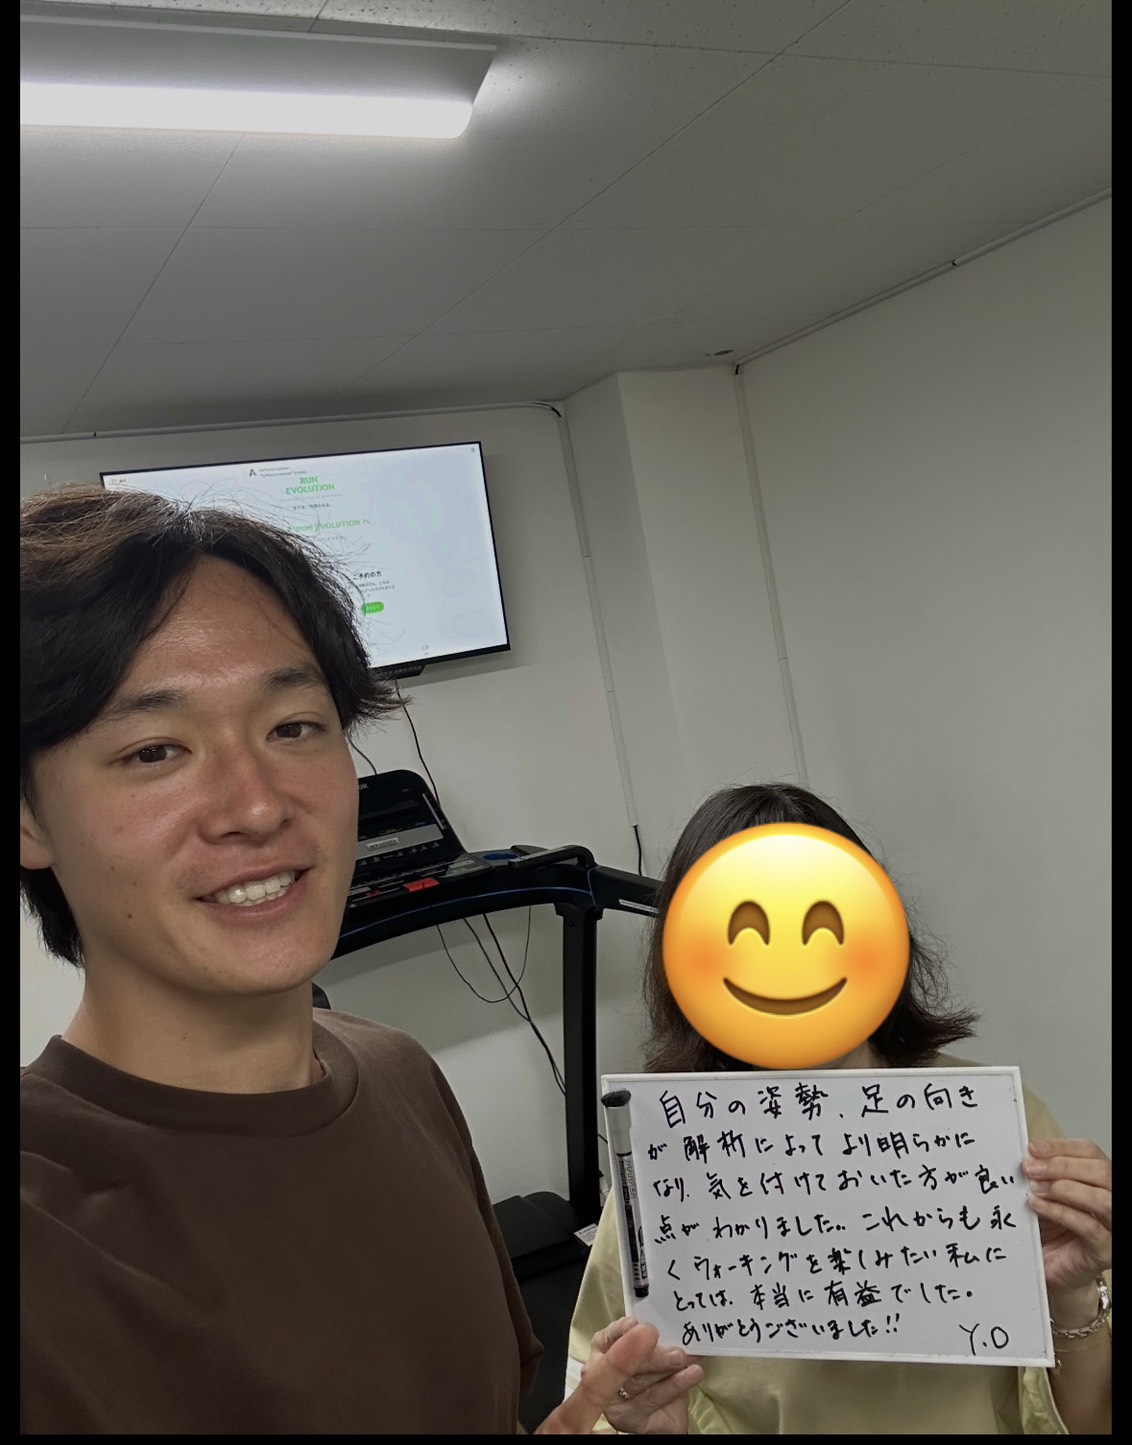 RUN
EVOLUTION
RUN EVOLUTION へ
ご予約の方
自分の姿勢、足の向き
が解析によってより明らかに
なり、気を付けておいた方が良い
点がわかりました。これからも永
くウォーキングを楽しみたい私に
とっては、本当に有益でした。
ありがとうございました!!
Y.O